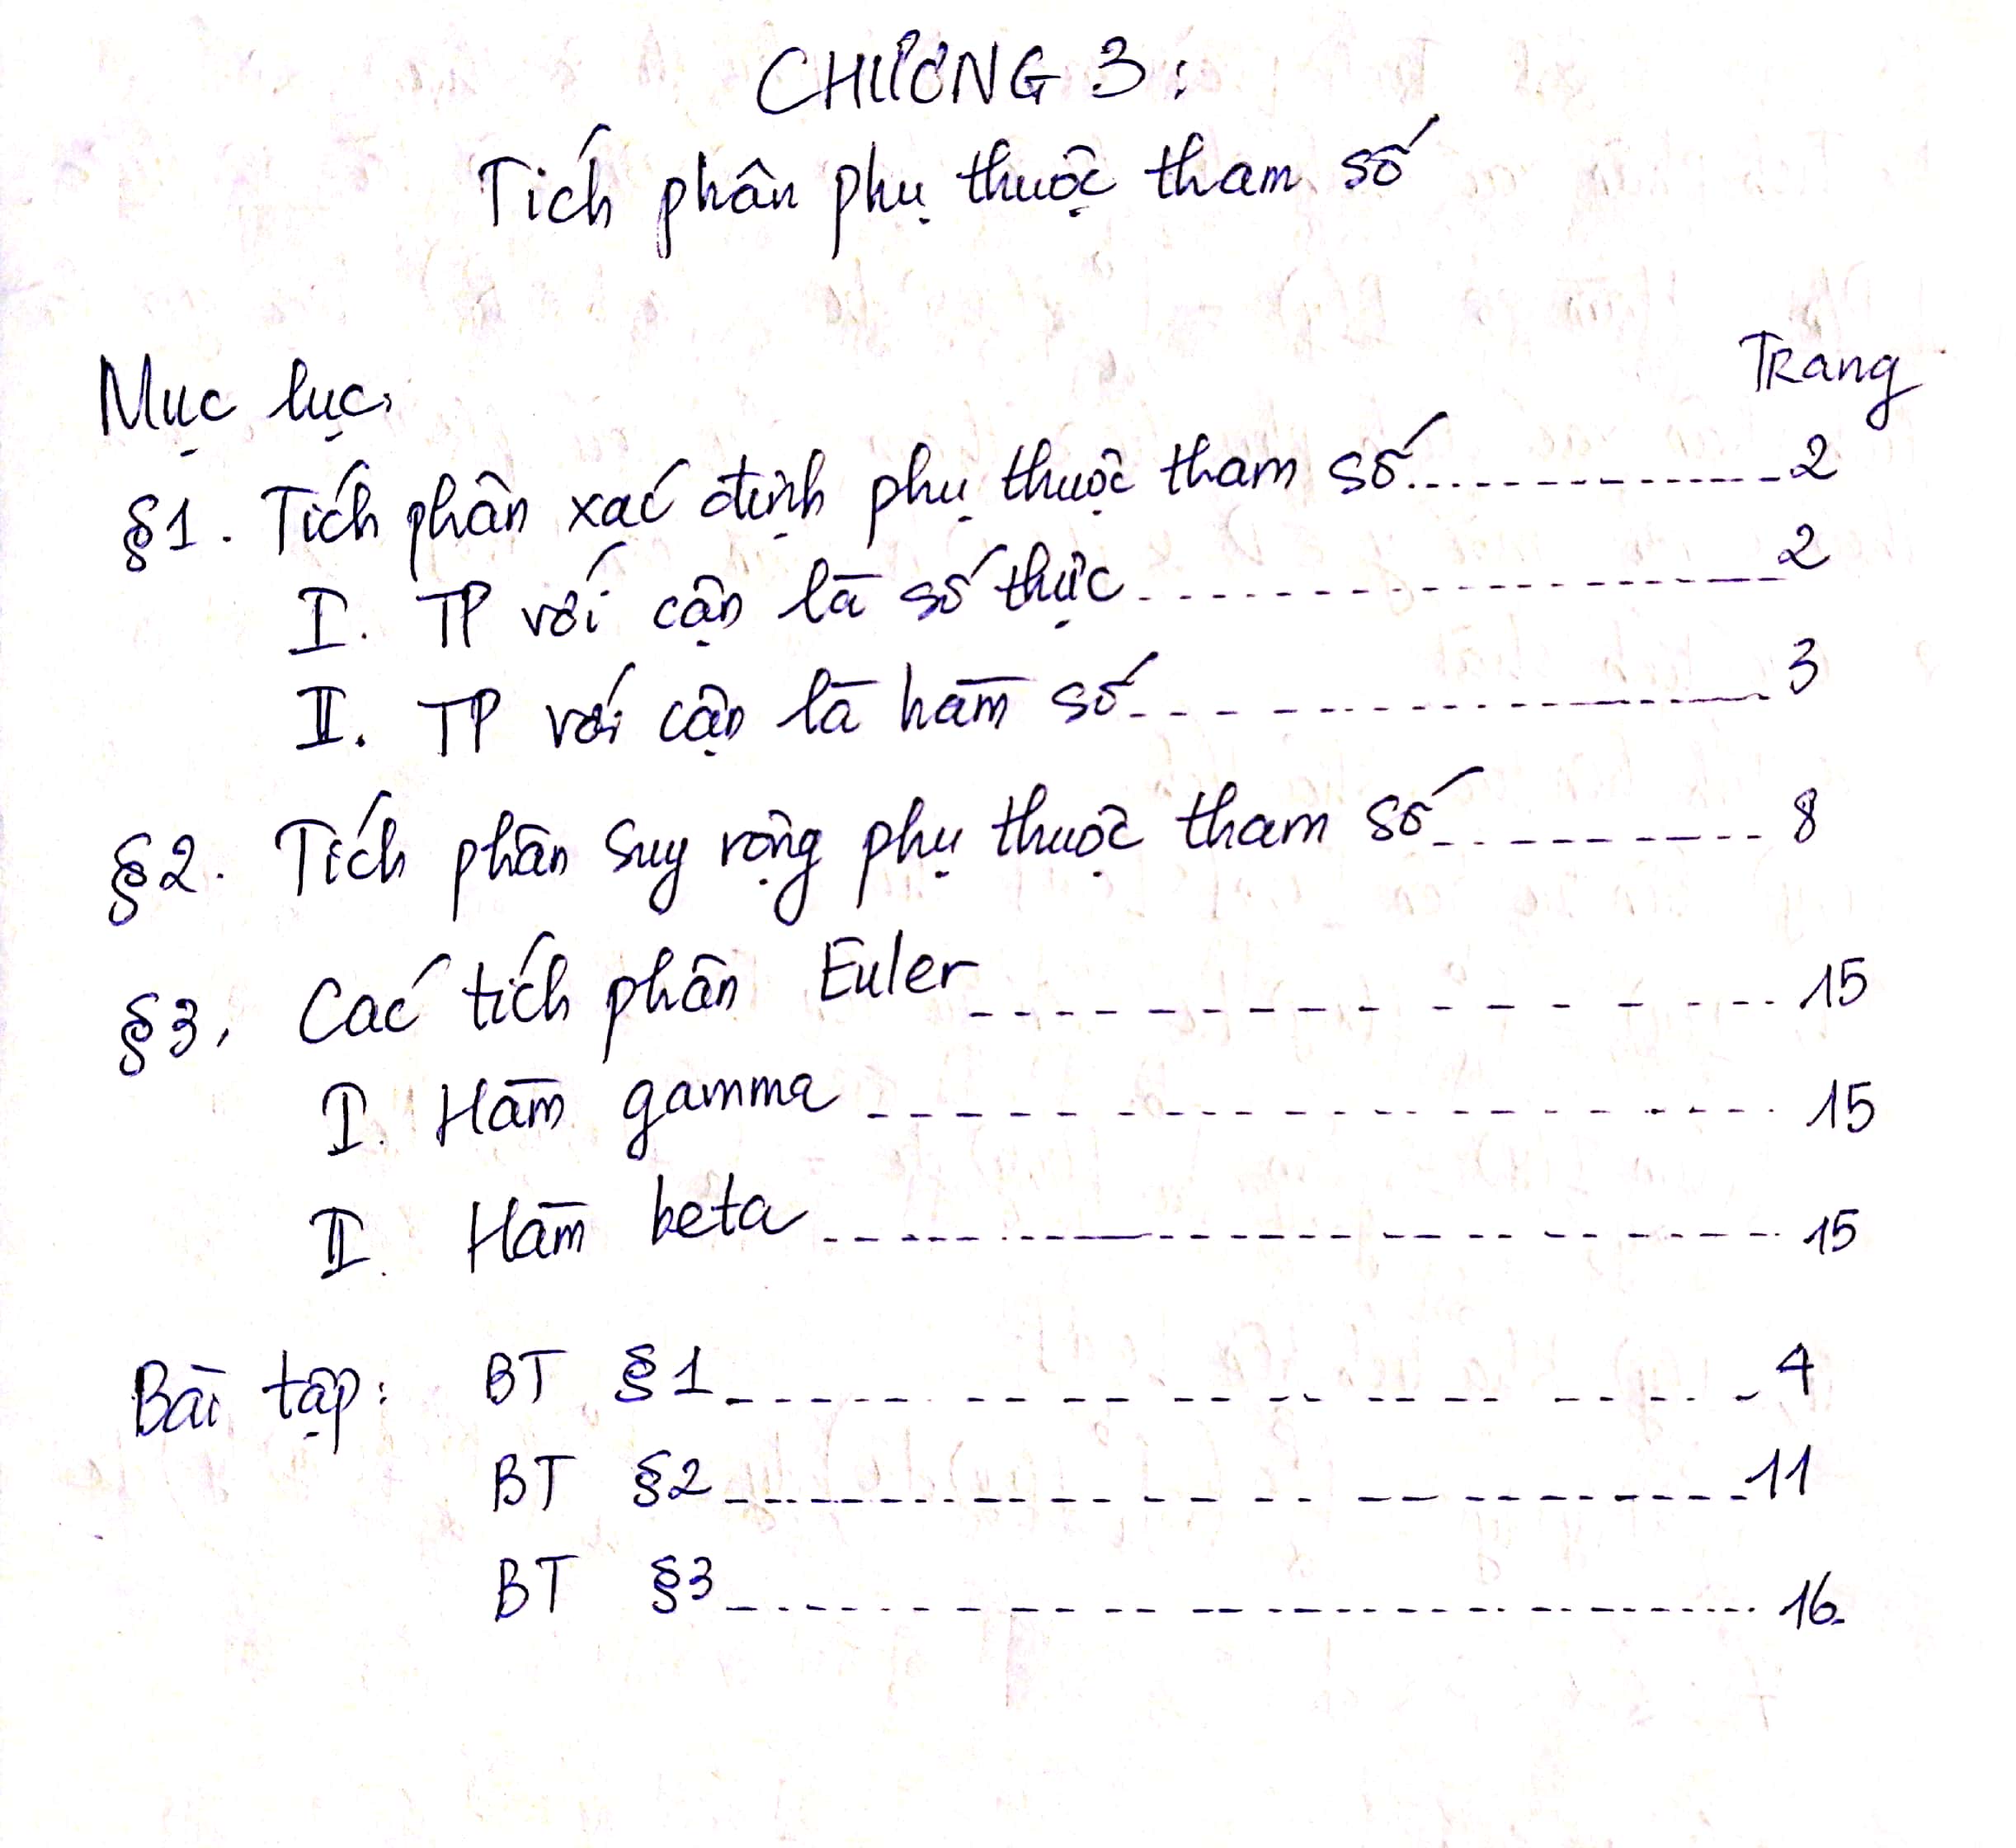 CHƯƠNG 3:
Tích phân phụ thuộc tham số
Trang
Mục lục:
§1. Tích phân xác định phụ thuộc tham số.......... 2
I. TP với cận là số thực.......... 2
II. TP với cận là hàm số.......... 3
§2. Tích phân suy rộng phụ thuộc tham số.......... 8
§3. Các tích phân Euler.......... 15
I. Hàm gamma.......... 15
II. Hàm beta.......... 15
Bài tập: BT §1.......... 4
BT §2.......... 11
BT §3.......... 16